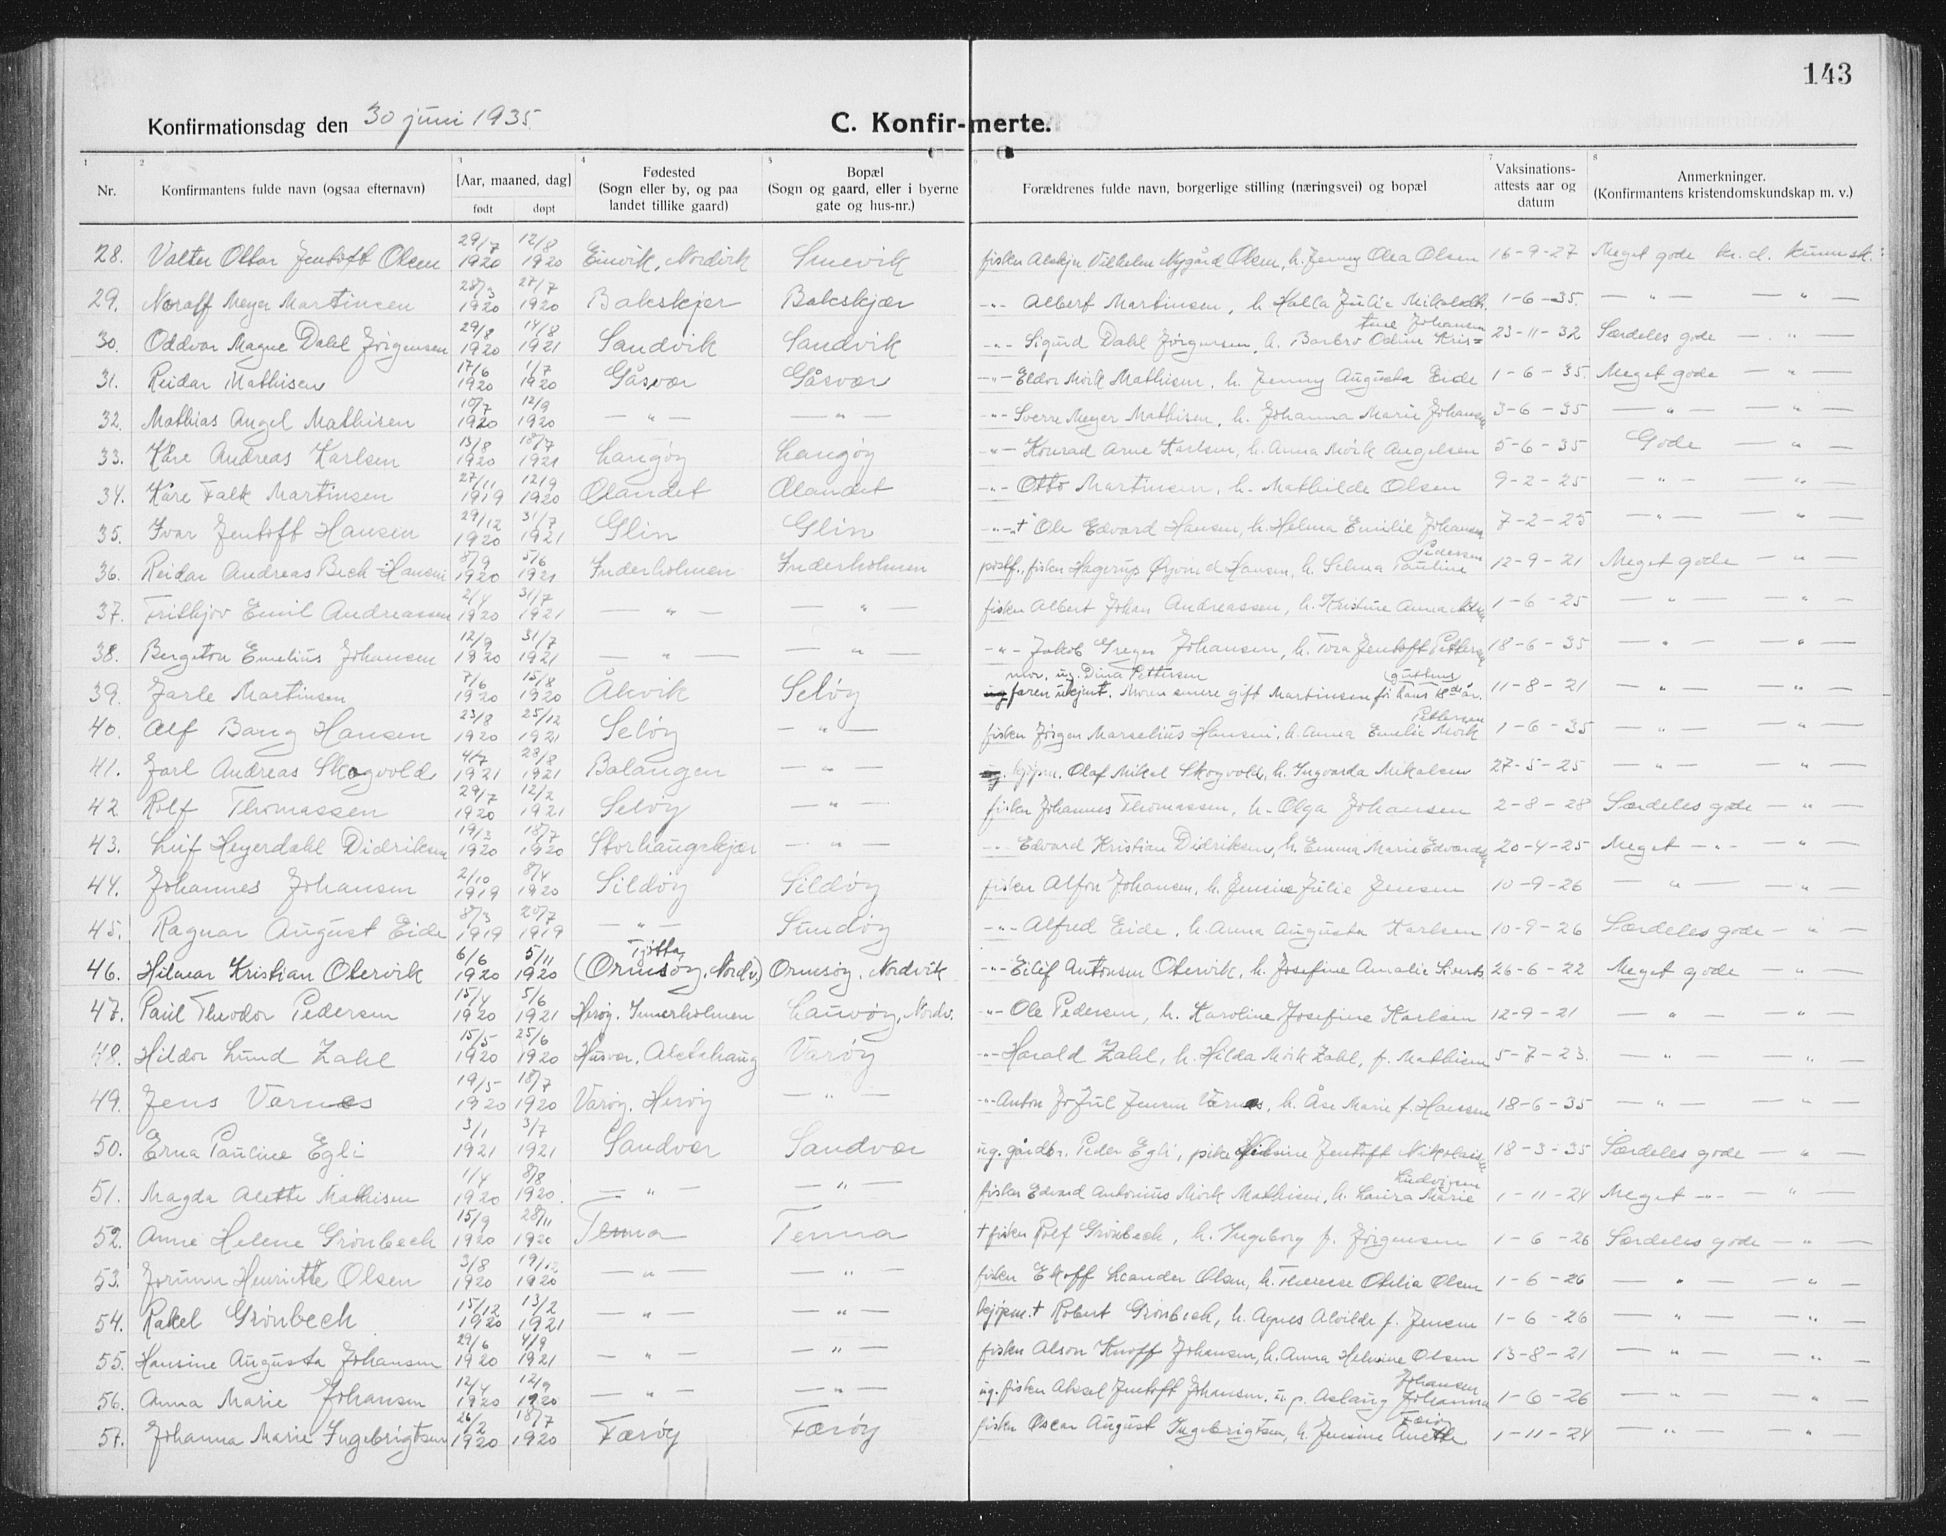 143
Konfirmationsdag den 30 juni 1935. C. Konfir-merte.
1 2 3 4 5 6 7 8
Nr. Konfirmantens fulde navn (ogsaa efternavn) [Aar, maaned, dag] født døpt Fødested (Sogn eller by, og paa landet tillike gaard) Bopæl (Sogn og gaard, eller i byerne gate og hus-nr.) Forældrenes fulde navn, borgerlige stilling (næringsvei) og bopæl Vaksinations-attests aar og datum Anmerkninger. (Konfirmantens kristendomskundskap m. v.)
28. Valter Ottar Jentoft Olsen 29/7 1920 12/8 1920 Nordvik fisker Vilhelm Nygård Olsen, h. Jenny Olea Olsen 16-9-27 Meget gode kr. d. kunnsk.
29. Meyer Martinsen 28/3 1920 27/7 1920 Bakskjær Bakskjær -"- Albert Martinsen, h. Halla Julie 1-6-35. — " — — " —
30. Oddvar Magne Dahl Jörgensen 29/8 1920 14/8 1921 Sandvik Sandvik -"- Sigurd Dahl Jörgensen, h. Barbro Odine Kris=tine Johansen 23-11-32 Særdeles gode — " —
31. Reidar Mathisen 17/6 1920 1/7 1920 Gåsvær Gåsvær -"- Eldor Mörk Mathisen, h. Jenny Augusta Eide 1-6-35. Meget gode — " —
32. Mathias Angel Mathisen 10/7 1920 12/9 1920 — " — — " — -"- Sverre Meyer Mathisen, h. Johanna Marie Johansen 3-6-35 — " — — " —
33. Kåre Andreas Karlsen 13/8 1920 18/7 1921 Langöy Langöy -"- Konrad Arne Karlsen, h. Anna Mörk Angelsen 5-6-35 Gode — " —
34. Kåre Falk Martinsen 27/11 1919 12/9 1920 Ølandet Ølandet -"- Otto Martinsen, h. Mathilde Olsen 9-2-25 — " — — " —
35. Ivar Jentoft Hansen 29/12 1920 31/7 1921 Glin Glin -"- † Ole Edvard Hansen, h. Helma Emilie Johansen 7-2-25 — " — — " —
36. Reidar Andreas Bech Hansen 8/9 1920 5/6 1921 Inderholmen Inderholmen postf., fisker Hagerup Hansen, h. Selma Pauline Pedersen 12-9-21 Meget gode — " —
37. Fritkjov Emil Andreassen 2/4 1920 31/7 1921 — " — — " — fisker Albert Johan Andreassen, h. Kristine Anna 1-6-25 — " — — " —
38. Bergeton Emelius Johansen 12/9 1920 31/7 1921 — " — — " — -"- Jakob Greger Johansen, h. Tora Jentoft Pettersen 18-6-35 — " — — " —
39. Jarle Martinsen 7/6 1920 15/8 1920 Åkvik Selöy mor. ug. Dina Pettersen faren ukjent. Moren senere gift Martinsen fr guttens 11-8-21 — " — — " —
40. Alf Bang Hansen 23/8 1920 25/12 1921 Selöy — " — fisker Jörgen Marselius Hansen, h. Anna Emelie Mörk Pettersen 1-6-35 — " — — " —
41. Jarl Andreas Skogvold 4/7 1921 28/8 1921 Balangen — " — kjöpm. Olaf Mikal Skogvold, h. Ingvarda Mikalsen 27-5-25 — " — — " —
42 Rolf Thomassen 29/7 1920 12/2 1921 Selöy — " — fisker Johannes Thomassen, h. Olga Johansen 2-8-28 Særdeles gode — " —
43. Leif Heyerdahl Didriksen 19/3 1920 18/7 1920 Storhaugskjær — " — -"- Edvard Kristian Didriksen, h. Emma Marie 20-4-25 Meget -"- — " —
44. Johannes Johansen 2/10 1919 8/4 1920 Sildöy Sildöy fisker Alfon Johansen, h. Jensine Julie Jensen 10-9-26 — " — — " —
45. Ragnar August Eide 8/3 1919 20/7 1919 — " — Sundöy -"- Alfred Eide, h. Anna Augusta Karlsen 10-9-26 Særdeles gode — " —
46. Hilmar Kristian Otervik 6/6 1920 5/11 1920 Tjötta (Ormsöy, Nordv.) Ormsöy, Nordvik -"- Eilif Antonsen Otervik, h. Josefine Amalie 26-6-22 Meget gode — " —
47. Paul Theodor Pedersen 15/4 1920 5/6 1921 Heröy. Innerholmen Nordv. -"- Ole Pedersen, h. Karoline Josefine Karlsen 12-9-21 — " — — " —
48. Hildor Lund Zahl 15/5 1920 25/6 1920 Husvær, Alstahaug Varöy -"- Harald Zahl, h. Hilda Mörk Zahl, f. Mathisen 5-7-23. — " — — " —
49. Jens Varnes 19/5 1920 18/7 1920 Varöy, Heröy — " — -"- Anton Jul Jensen Varnes, h. Åse Marie f. Hanssen 18-6-35 — " — — " —
50. Erna Pauline Egli 3/1 1921 3/7 1921 Sandvær Sandvær ug. gårdbr. Peder Egli, pike Jentoft 18-3-35 Særdeles gode — " —
51. Magda Alette Mathisen 1/4 1920 8/8 1920. — " — — " — fisker Edvard Antonius Mörk Mathisen, h. Laura Marie Ludvigsen 1-11-24 Meget -"- — " —
52. Anne Helene Grönbech 15/9 1920 28/11 1920 Tenna Tenna † fisker Rolf Grönbech, h. Ingeborg f. Jörgensen 1-6-26 Særdeles gode — " —
53. Jorunn Henriette Olsen 3/8 1920 19/12 1920 — " — — " — fisker Leander Olsen, h. Therese Otelia Olsen 1-6-26 — " — — " —
54. Rakel Grönbech 15/12 1920 13/2 1921 — " — — " — kjöpm. † Robert Grönbech, h. Agnes Alvilde f. Jensen 1-6-26 — " — — " —
55. Hansine Augusta Johansen 29/6 1920 4/9 1921 — " — — " — fisker Alson Knoff Johansen, h. Anna Helmine Olsen 13-8-21 — " — — " —
56. Anna Marie Johansen 12/4 1920 12/9 1920 — " — — " — ug. fisker Aksel Jentoft Johansen, u. p. Aslaug Johanna Johansen 1-6-26 — " — — " —
57. Johanna Marie Ingebrigtsen 26/2 1920 18/7 1920 Færöy Færöy fisker Oscar August Ingebrigtsen, h. Jensine Anette Færöy 1-11-24 — " — — " —